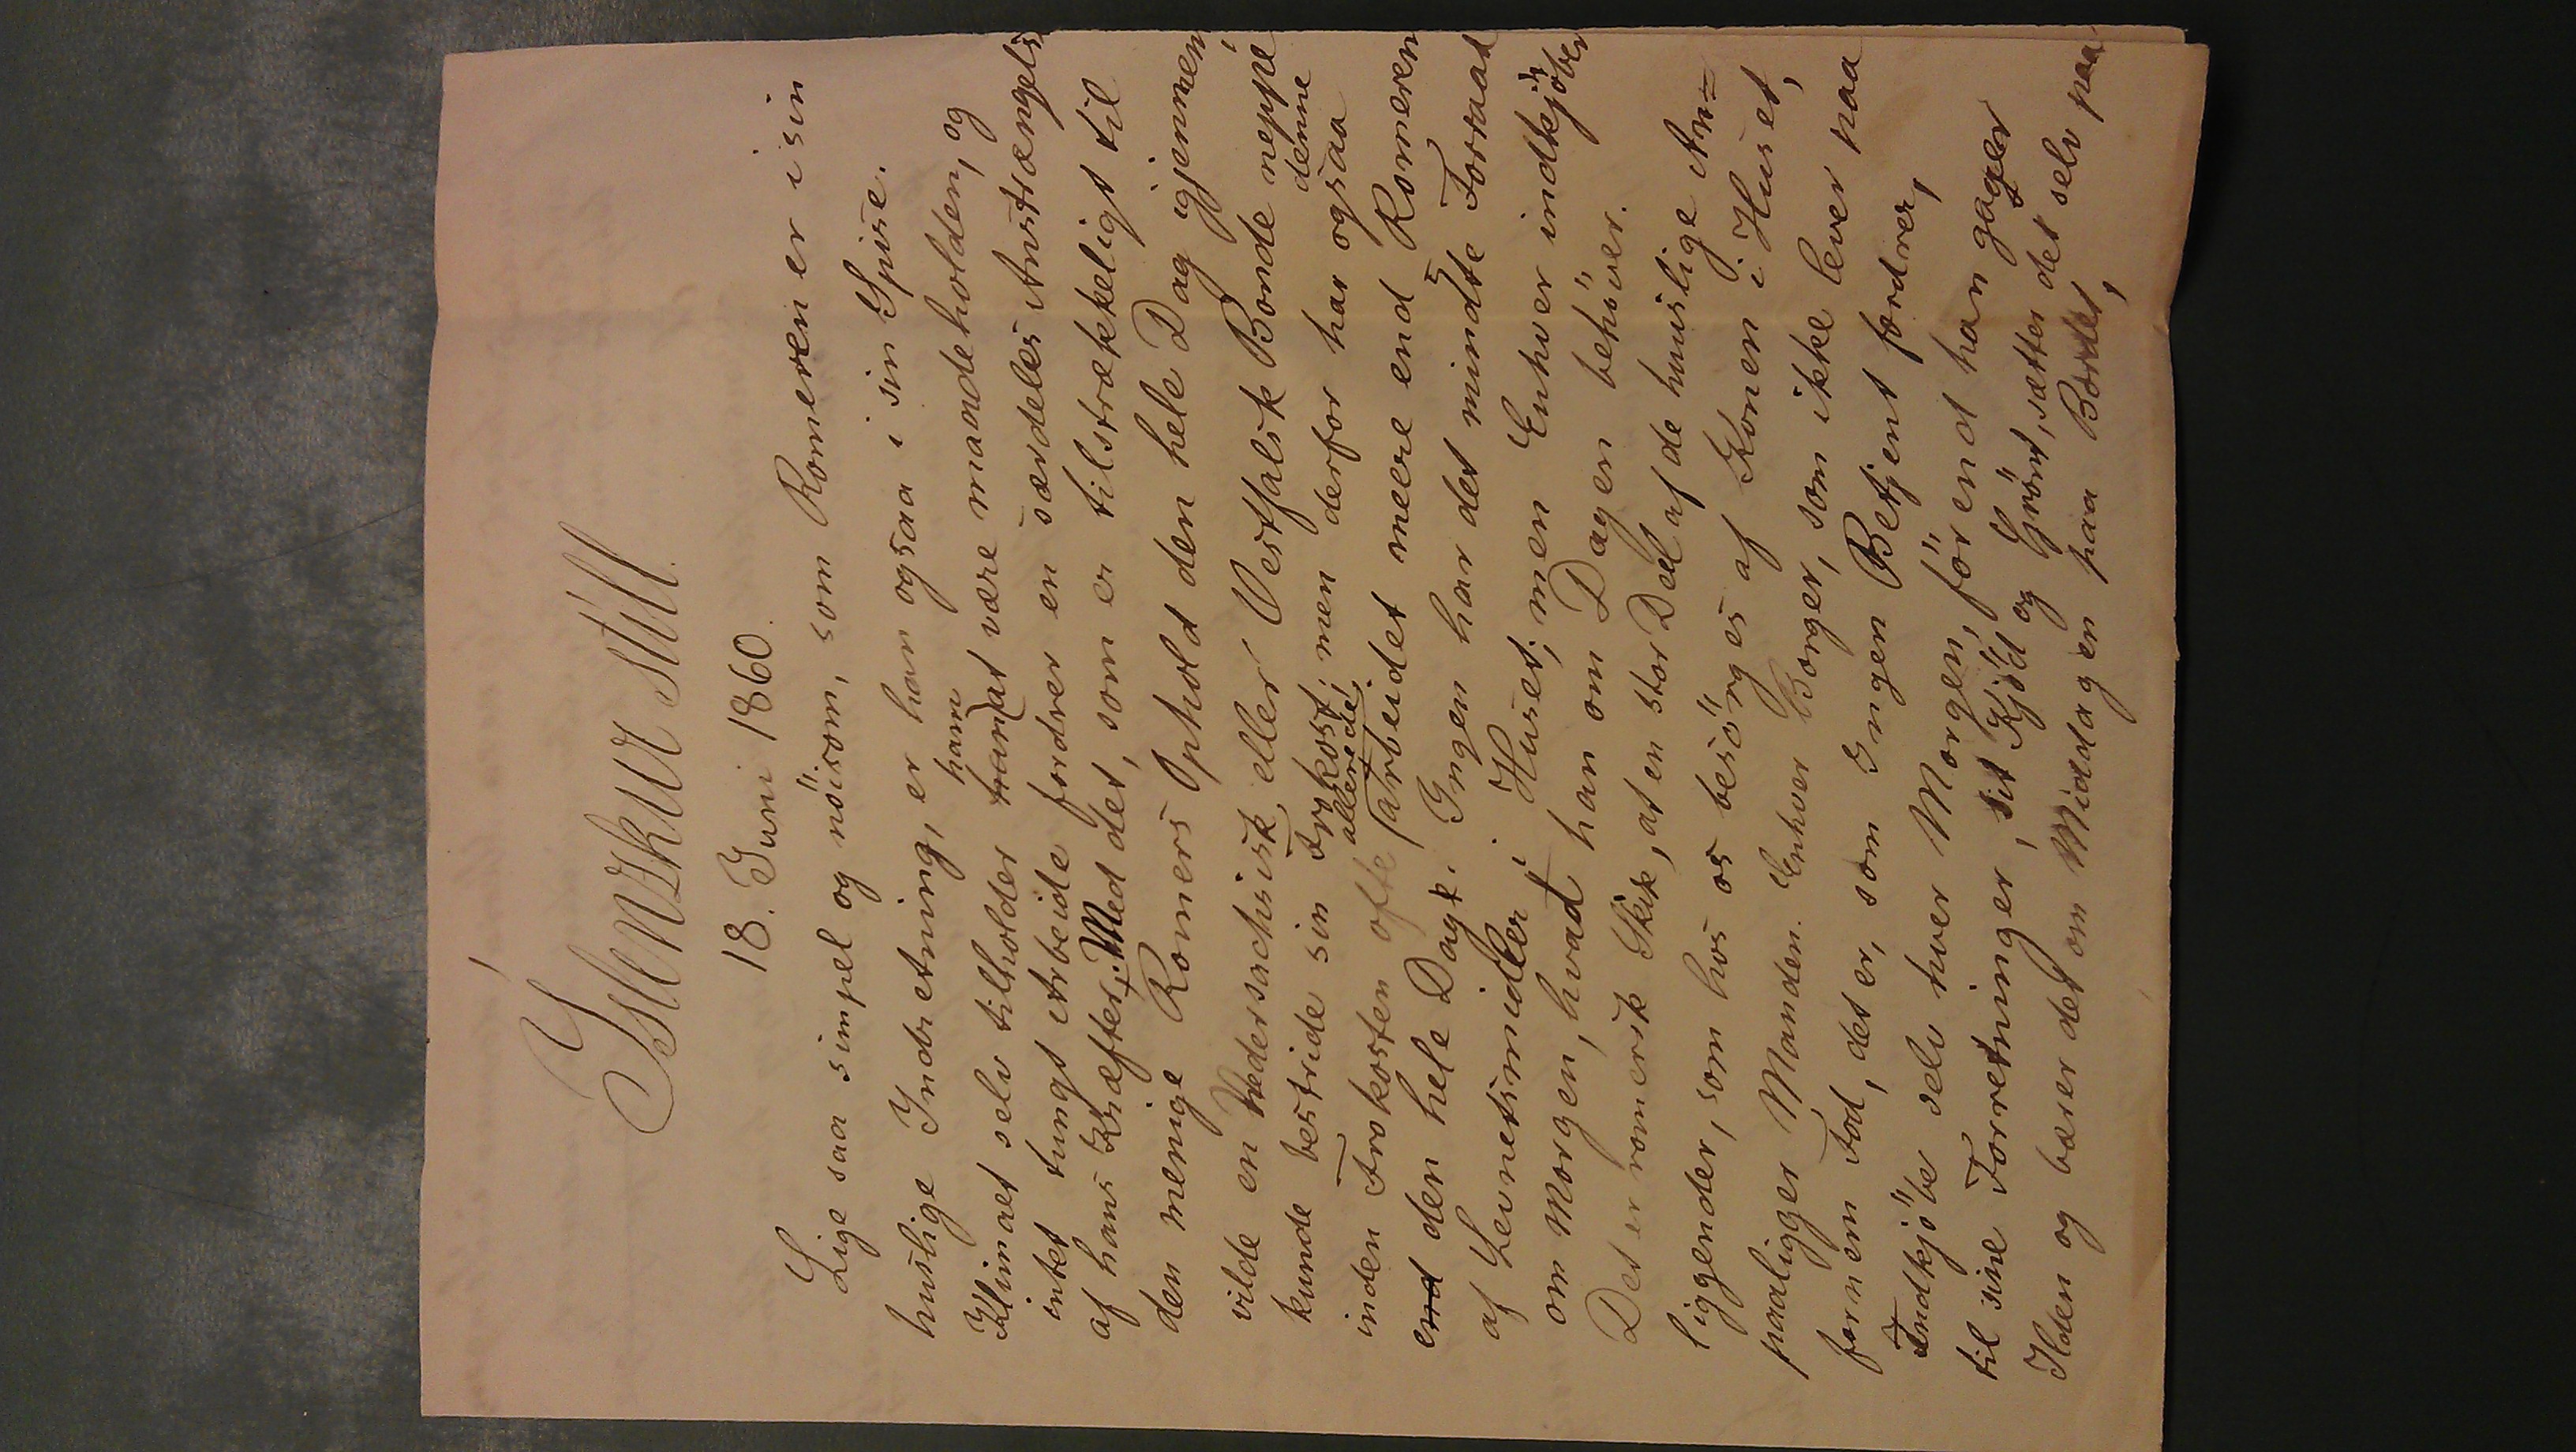 Íslenzkur stíll.
18. Juni 1860.
Lige saa simpel og nöisom, som Romeren er i sin
huslige Indretning, er han ogsaa i sin Spise.
ham
Klimaet selv tilholder at være maadeholden, og
intet tungt Arbeide fordrer en særdeles Anstrængelse
af hans Kræfter. Med det, som er tilstrækkeligt til
den menige Romers Ophold den hele Dag igjennem
vilde en Nedersachsisk eller Vestfalisk Bonde neppe
kunde bestride sin Frokost; men derfor har ogsaa denne
inden Frokosten ofte allerede arbeidet meere end Romeren
end den hele Dag. Ingen har det mindste Forraad
af Levnetsmidler i Huset; men Enhver indkjöber
om Morgen, hvad han om Dagen behöver.
Det er romersk Skik, at en stor Deel af de huuslige An=
liggender, som hos os besörges af Konen i Huset,
paaligger Manden. Enhver Borger, som ikke lever paa
fornem Fod, det er, som Ingen Betjent fordrer,
Indkjöber selv hver Morgen, förend han gaaer
til sine Forretninger, sit Kjöd og Grönt, sætter det selv paa
Ilden og bærer det om Middagen paa Bordet,